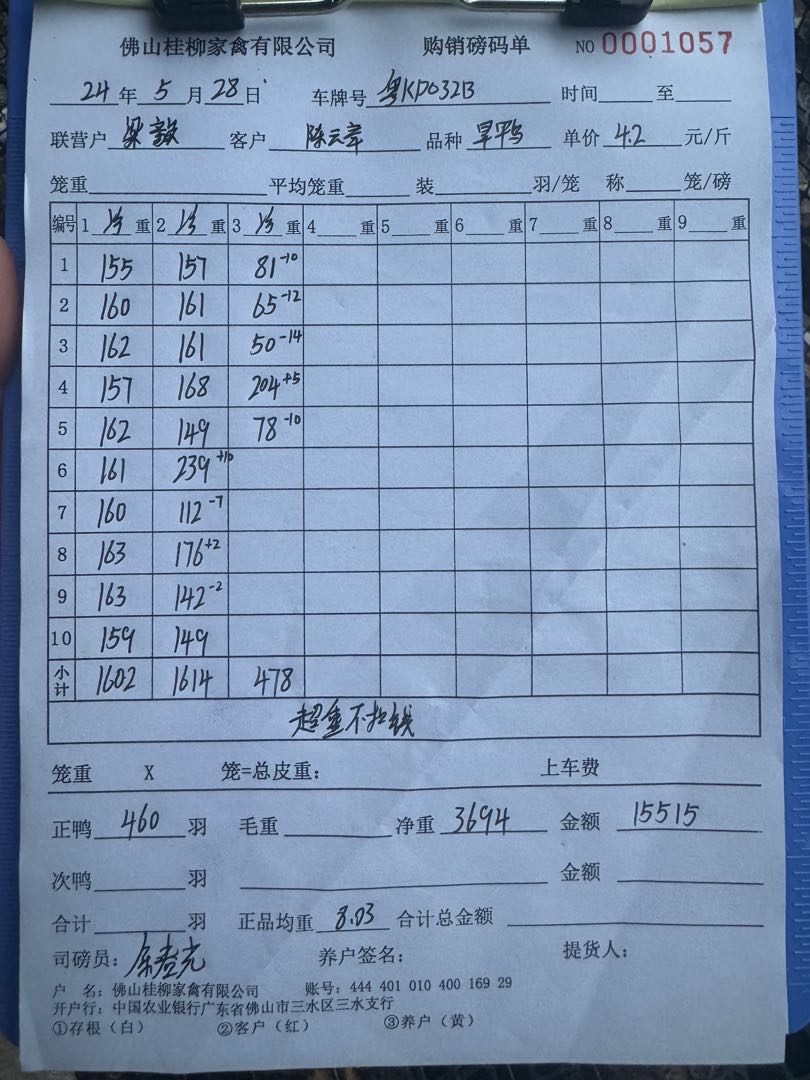 佛山桂柳家禽有限公司 购销磅码单 NO 0001057
24 年 5 月 28 日 车牌号 粤KP032B 时间 至
联营户 梁 客户 陈云章 品种 旱平鸭 单价 4.2 元/斤
笼重 平均笼重 装 羽/笼 称 笼/磅
编号 1 净 重 2 净 重 3 净 重 4 重 5 重 6 重 7 重 8 重 9 重
1 155 157 81 -10
2 160 161 65 -12
3 162 161 50 -14
4 157 168 204 +5
5 162 149 78 -10
6 161 239 +10
7 160 112 -7
8 163 176 +2
9 163 142 -2
10 159 149
小计 1602 1614 478
超重不扣钱
笼重 X 笼=总皮重: 上车费
正鸭 460 羽 毛重 净重 3694 金额 15515
次鸭 羽 金额
合计 羽 正品均重 8.03 合计总金额
司磅员: 养户签名: 提货人:
户 名: 佛山桂柳家禽有限公司 账号: 444 401 010 400 169 29
开户行: 中国农业银行广东省佛山市三水区三水支行
①存根(白) ②客户(红) ③养户(黄)